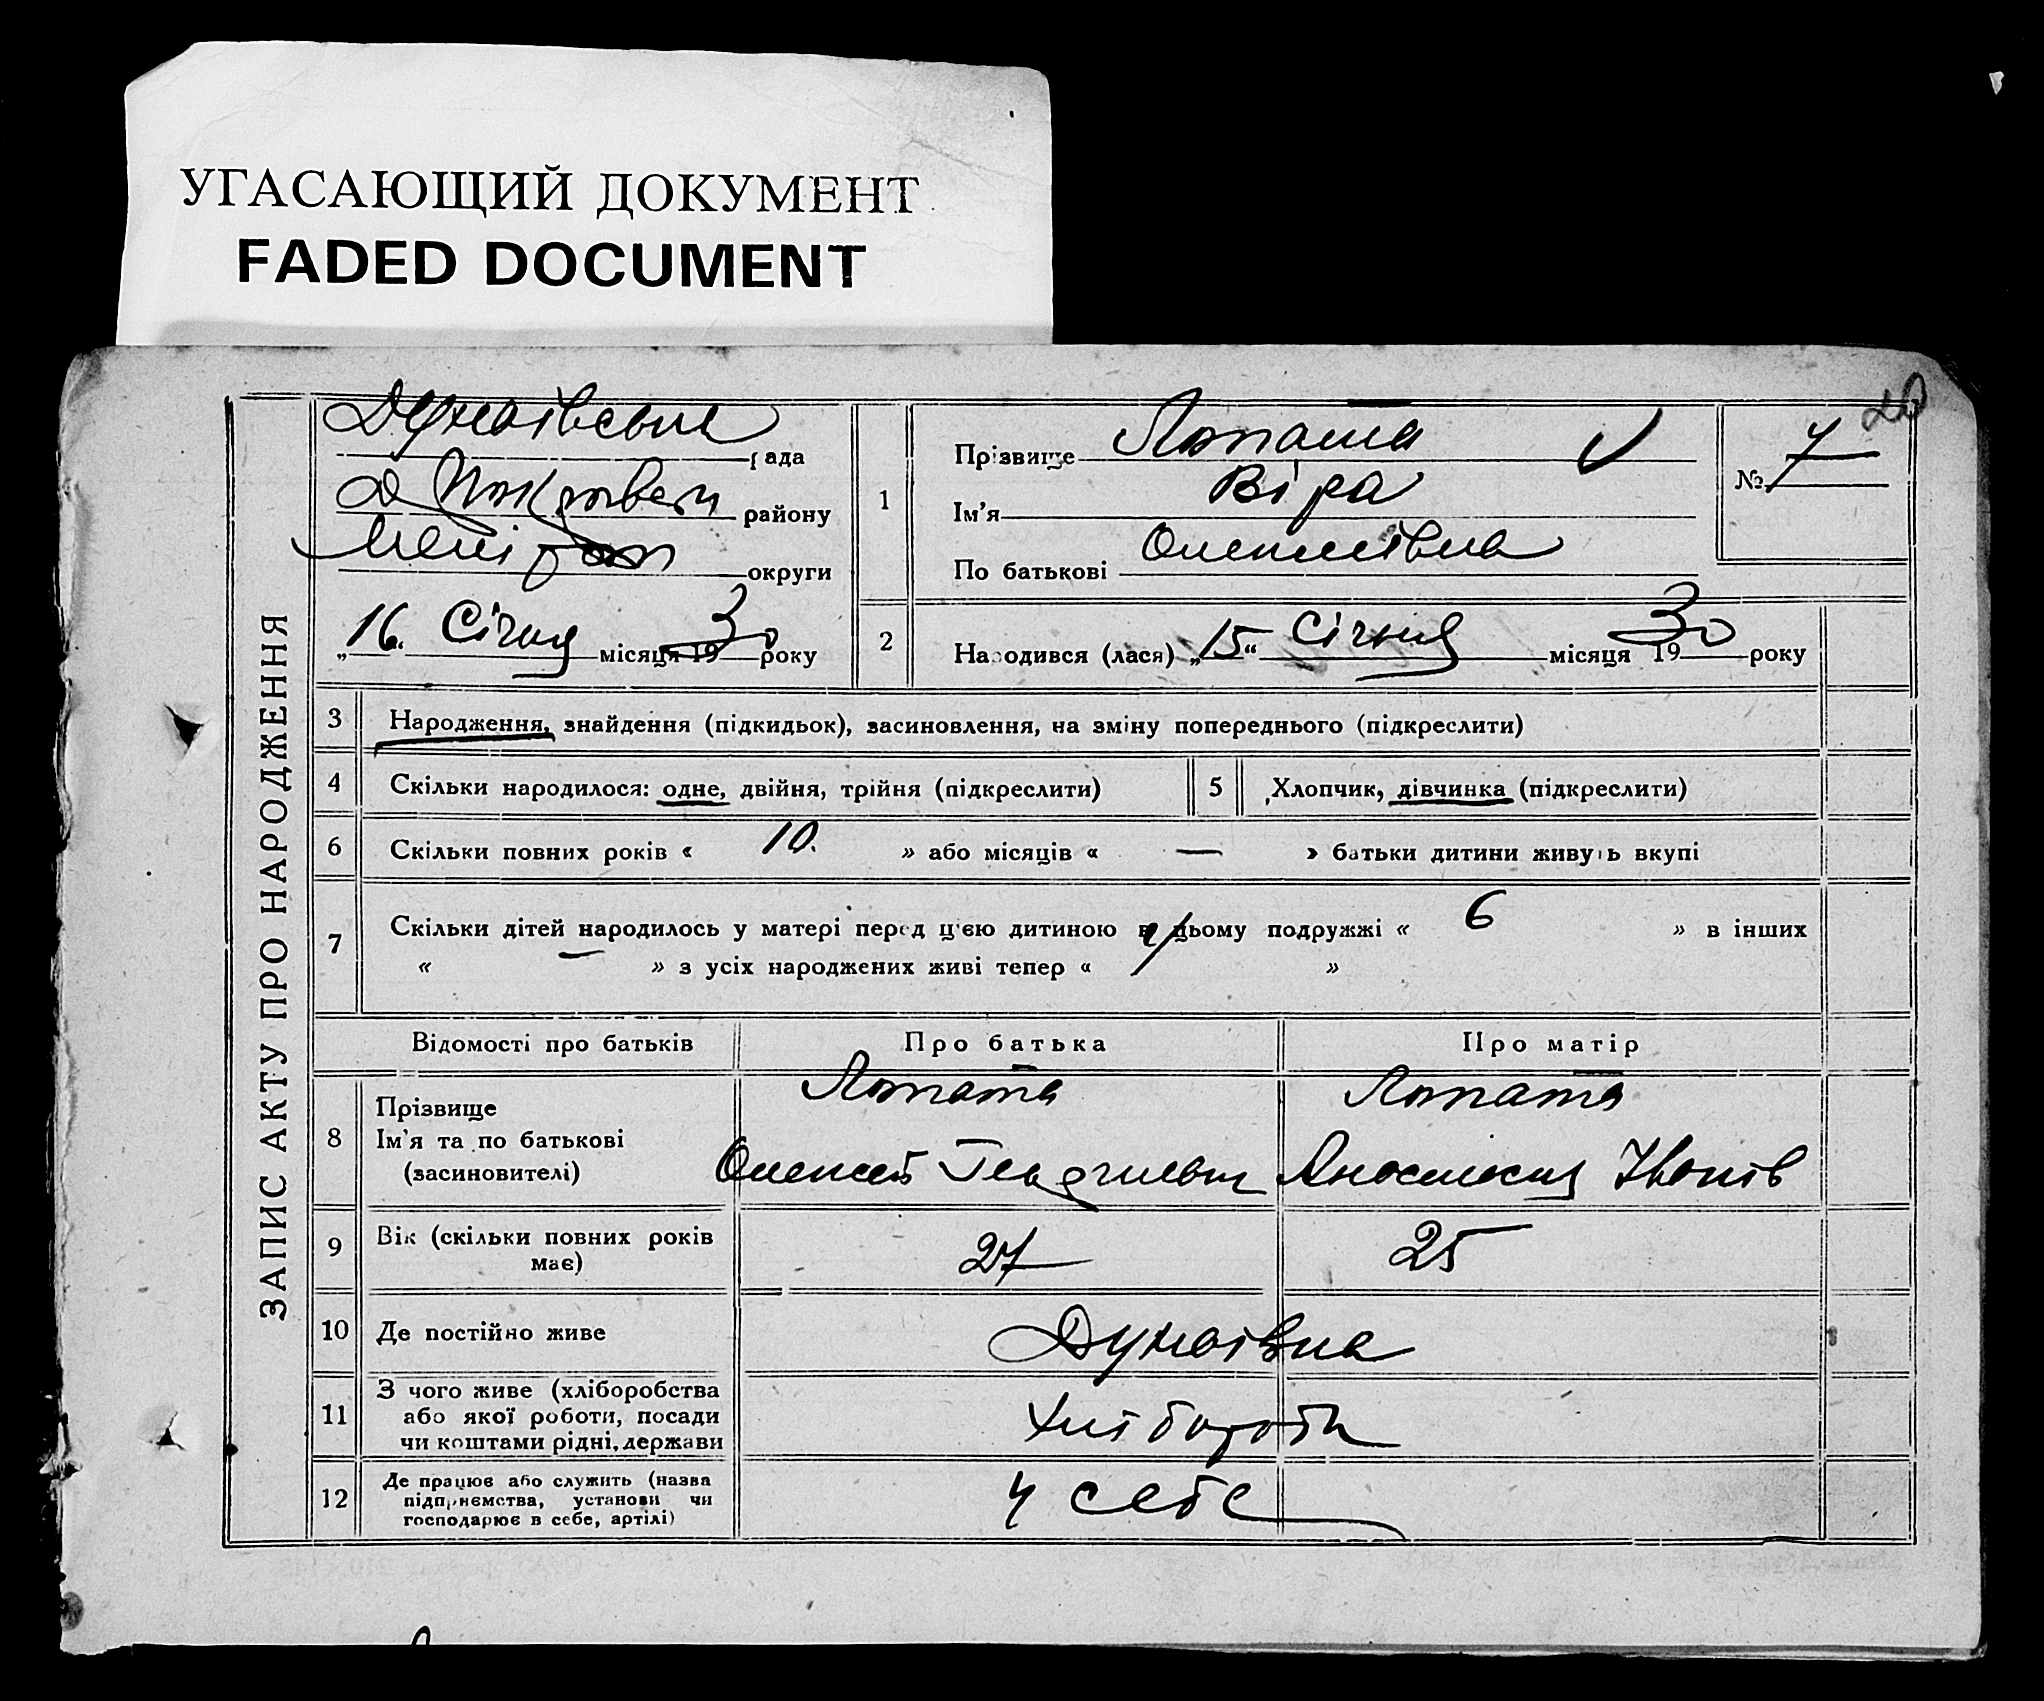 УГАСАЮЩИЙ ДОКУМЕНТ
FADED DOCUMENT
20
ЗАПИС АКТУ ПРО НАРОДЖЕННЯ
Дунаївська рада
району
округи
„16“ Січня місяця 1930 року
1
Прізвище Лопата
Ім'я Віра
По батькові Олексіївна
№ 7
2
Народився (лася) „15“ Січня місяця 1930 року
3 Народження, знайдення (підкидьок), засиновлення, на зміну попереднього (підкреслити)
4 Скільки народилося: одне, двійня, трійня (підкреслити)
5 Хлопчик, дівчинка (підкреслити)
6 Скільки повних років « 10. » або місяців « — » батьки дитини живуть вкупі
7 Скільки дітей народилось у матері перед ц'єю дитиною в цьому подружжі « 6 » в інших
« — » з усіх народжених живі тепер « »
Відомості про батьків Про батька Про матір
8 Прізвище Лопата Лопата
Ім'я та по батькові Олексій Георгиевич
(засиновителі)
9 Вік (скільки повних років має) 27 25
10 Де постійно живе Дунаївка
11 З чого живе (хліборобства
або якої роботи, посади
чи коштами рідні, держави
Хлібороби
12 Де працює або служить (назва
підприємства, установи чи
господарює в себе, артілі)
у себе